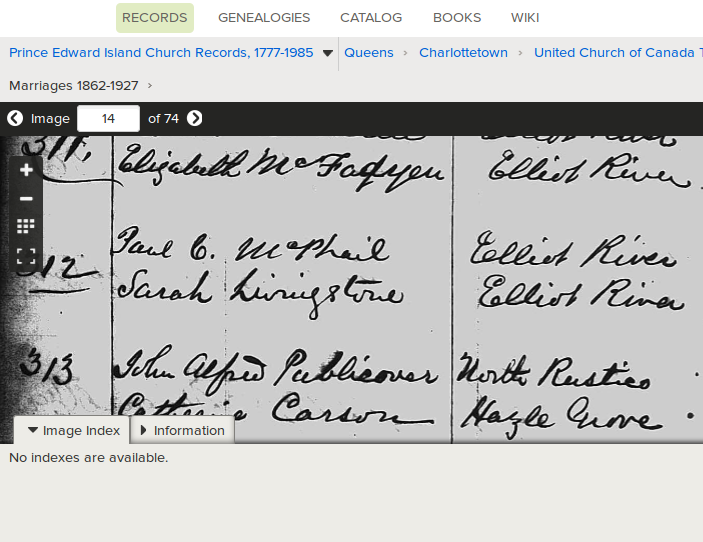 RECORDS GENEALOGIES CATALOG BOOKS WIKI
Prince Edward Island Church Records, 1777-1985 Queens › Charlottetown › United Church of Canada
Marriages 1862-1927 ›
Image 14 of 74
311,
Elizabeth McFadyen Elliot River
Paul C. McPhail Elliot River
312
Sarah Livingstone Elliot River
313 John Alfred Publicover North Rustico
Catherine Carson Hazle Grove
Image Index Information
No indexes are available.